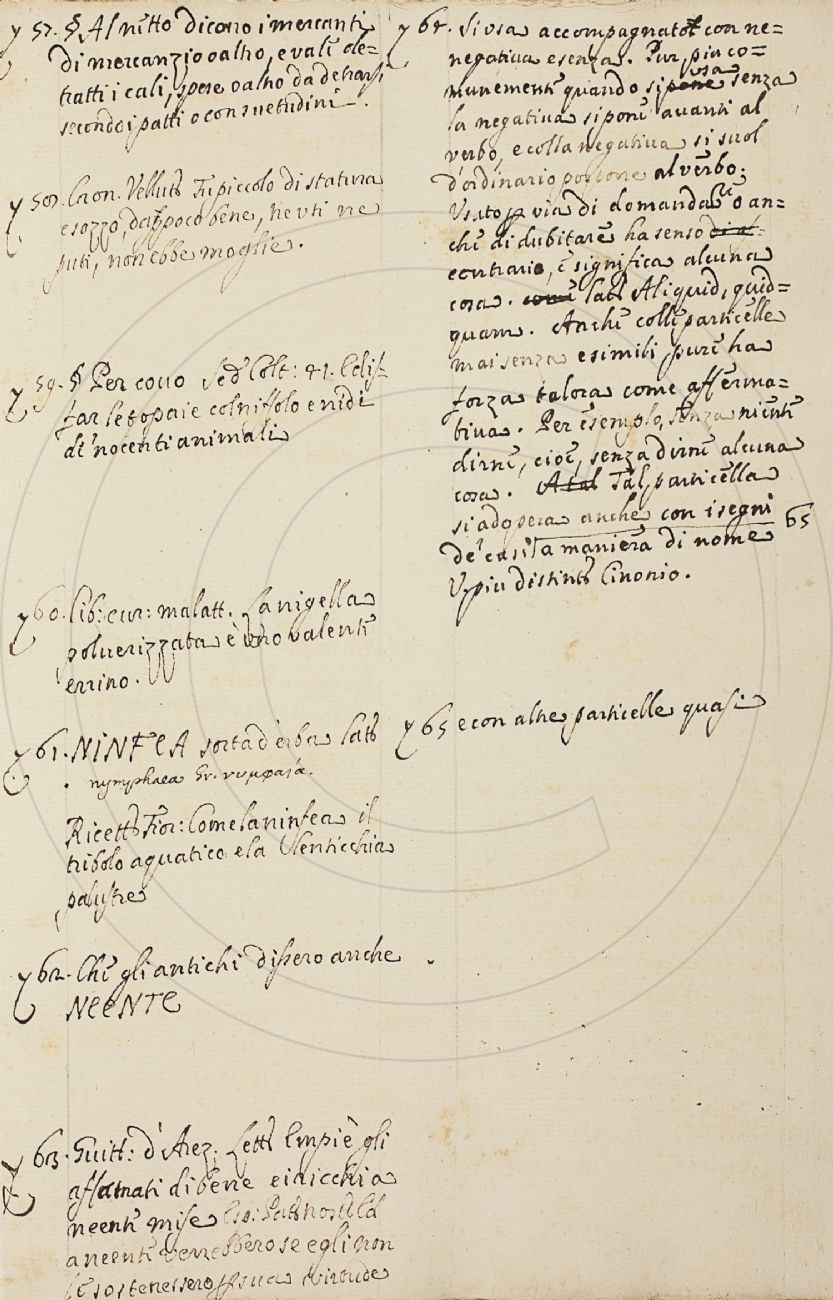 57. § Al nitto dicono i mercanti
di mercanzio o altro, e vale de=
tratti i cali, spese o altro da detrarsi
secondo i patti o consuetudini.
Cron. Vellut. Fu piccolo di statura
e sozzo, da poco bene, ne utile ne
futi, non ebbe moglie.
59. § Per covo Sod. Colt: 41. Edis-
far le topaie col niffolo e nidi
di nocenti animali
60. Lib: cur: malatt. La nigella
polverizzata è uno valente
errino.
61. NINFEA sorta d'erba Lat.
nymphaea Gr. νυμφαία.
Ricett. Fior: Come la ninfea il
tribolo aquatico e la lenticchia
palustre
62. Che gli antichi dissero anche
NEENTE
63. Guitt: d'Arez. Lett. Empiè gli
affamati di bene e i ricchi a
neente mise
a neente verrebbero se egli non
le sostenessero p sua virtude
64. Si usa accompagnato con ne=
negativa e senza. Pur, piu co=
munemente quando si usa senza
la negativa si pone avanti al
verbo, e colla negativa si suol
d'ordinario posporre al verbo.
Usato p via di domanda o an=
che di dubitare ha senso
contrario, e significa alcuna
cosa. come lat. Aliquid, quid=
quam. Anche colle particelle
mai senza e simili, pure ha
forza talora come afferma=
tiva. Per esempio, senza niente
dirne, cioè, senza dirne alcuna
cosa. Tal particella
si adopera anche con i segni 65
de' casi a maniera di nome
V. piu distint. Cinonio.
65 e con altre particelle quasi